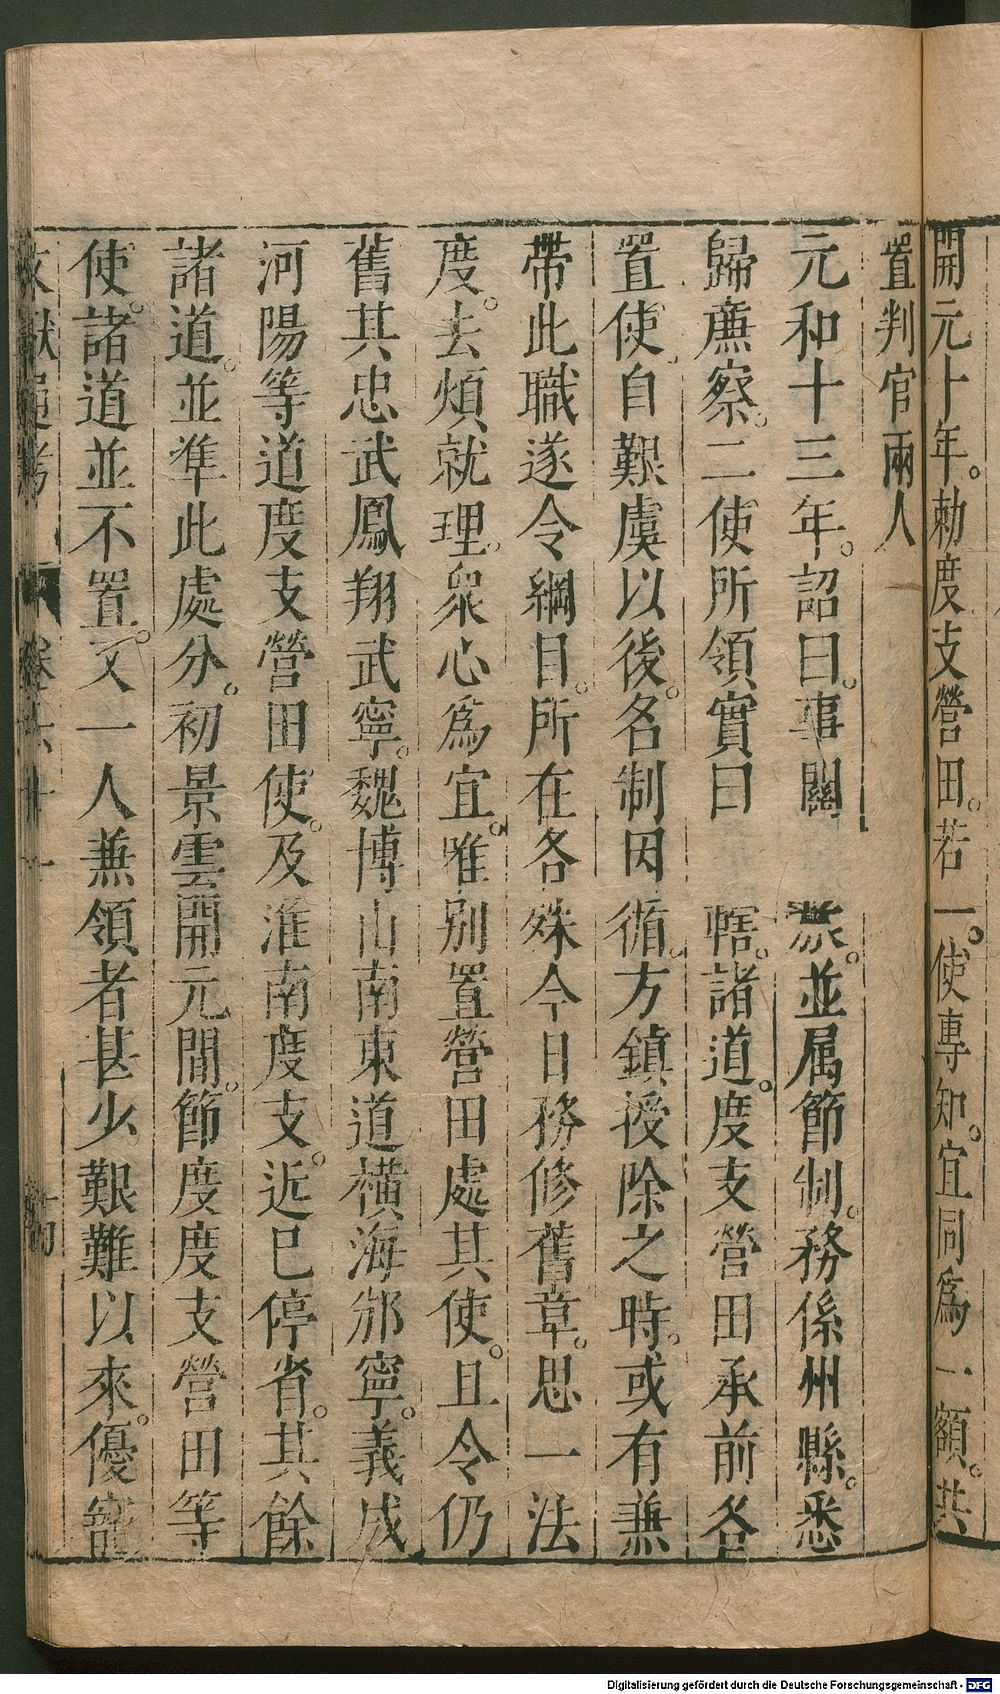 開元十年。勅度支營田。若一使專知。宜同爲一額。共
置判官兩人
元和十三年。詔曰。事關 旅。並属節制。務係州縣。悉
歸廉察。二使所領實曰 轄。諸道。度支營田承前各
置使。自艱虞以後。名制因循。方鎮授除之時。或有兼
帶此職遂令綱目。所在各殊今日務修舊章。思一法
度。去煩就理。衆心爲宜。唯别置營田處其使。且令仍
舊其忠武鳳翔武寧。魏博山南東道橫海邠寧。義成
河陽等道度支營田使。及淮南度支。近已停省。其餘
諸道。並準此處分。初景雲開元間。節度度支營田等
使。諸道並不置。又一人兼領者甚少。艱難以來。優寵
文獻通考 卷六十一
Digitalisierung gefördert durch die Deutsche Forschungsgemeinschaft - DFG